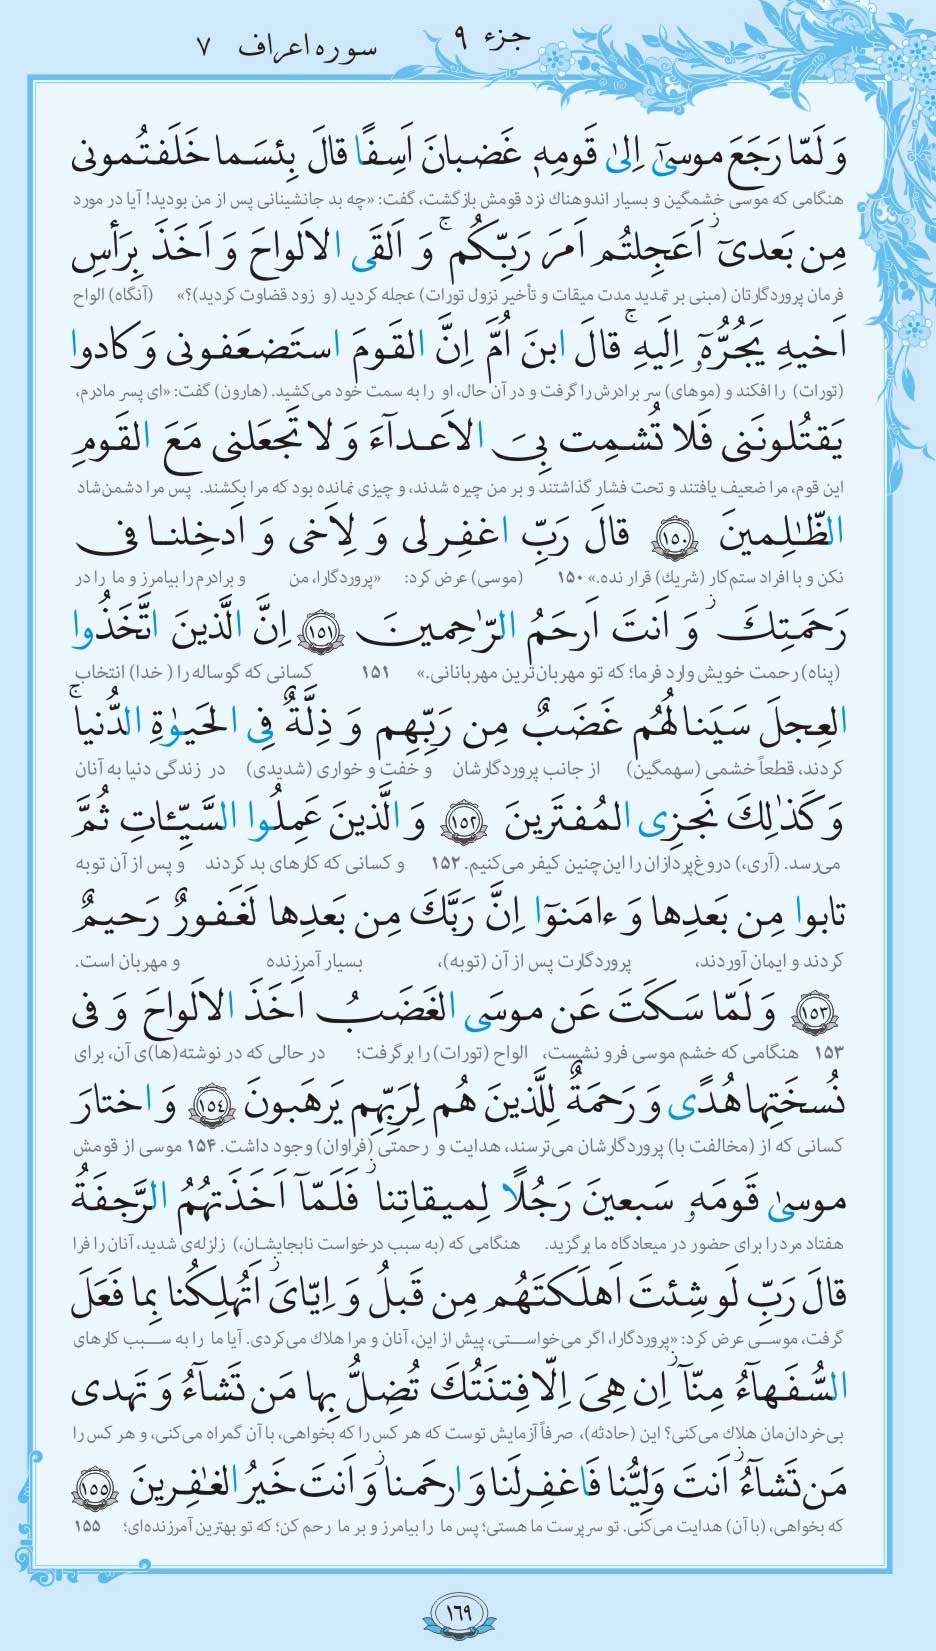 جزء ۹
سوره اعراف ۷
وَ لَمّا رَجَعَ موسىٰٓ اِلىٰ قَومِهٖ غَضبانَ اَسِفًا قالَ بِئسَما خَلَفتُمونى
هنگامی که موسی خشمگین و بسیار اندوهناک نزد قومش بازگشت، گفت: «چه بد جانشینانی پس از من بودید! آیا در مورد
مِن بَعدىٓ ۖ اَعَجِلتُم اَمرَ رَبِّكُم ۚ وَ اَلقَى الاَلواحَ وَ اَخَذَ بِرَأسِ
فرمان پروردگارتان (مبنی بر تمدید مدت میقات و تأخیر نزول تورات) عجله کردید (و زود قضاوت کردید)؟» (آنگاه) الواح
اَخيهِ يَجُرُّهٗٓ اِلَيهِ ۚ قالَ ابنَ اُمَّ اِنَّ القَومَ استَضعَفونى وَ كادوا
(تورات) را افکند و (موهای) سر برادرش را گرفت و در آن حال، او را به سمت خود می‌کشید. (هارون) گفت: «ای پسر مادرم،
يَقتُلونَنى فَلا تُشمِت بِىَ الاَعدآءَ وَ لا تَجعَلنى مَعَ القَومِ
این قوم، مرا ضعیف یافتند و تحت فشار گذاشتند و بر من چیره شدند، و چیزی نمانده بود که مرا بکشند. پس مرا دشمن‌شاد
الظّٰلِمينَ ١٥٠ قالَ رَبِّ اغفِرلى وَ لِاَخى وَ اَدخِلنا فى
نکن و با افراد ستم‌کار (شریک) قرار نده.» ۱۵۰ (موسی) عرض کرد: «پروردگارا، من و برادرم را بیامرز و ما را در
رَحمَتِكَ ۖ وَ اَنتَ اَرحَمُ الرّٰحِمينَ ١٥١ اِنَّ الَّذينَ اتَّخَذُوا
(پناه) رحمت خویش وارد فرما؛ که تو مهربان‌ترین مهربانانی.» ۱۵۱ کسانی که گوساله را (خدا) انتخاب
العِجلَ سَيَنالُهُم غَضَبٌ مِن رَبِّهِم وَ ذِلَّةٌ فِى الحَيوٰةِ الدُّنيا ۚ
کردند، قطعاً خشمی (سهمگین) از جانب پروردگارشان و خفت و خواری (شدیدی) در زندگی دنیا به آنان
وَ كَذٰلِكَ نَجزِى المُفتَرينَ ١٥٢ وَ الَّذينَ عَمِلُوا السَّيِّـٔاتِ ثُمَّ
می‌رسد. (آری،) دروغ‌پردازان را این‌چنین کیفر می‌کنیم. ۱۵۲ و کسانی که کارهای بد کردند و پس از آن توبه
تابوا مِن بَعدِها وَ ءامَنوٓا اِنَّ رَبَّكَ مِن بَعدِها لَغَفورٌ رَحيمٌ
کردند و ایمان آوردند، پروردگارت پس از آن (توبه)، بسیار آمرزنده و مهربان است.
١٥٣ وَ لَمّا سَكَتَ عَن موسَى الغَضَبُ اَخَذَ الاَلواحَ وَ فى
۱۵۳ هنگامی که خشم موسی فرو نشست، الواح (تورات) را برگرفت؛ در حالی که در نوشته(ها)ی آن، برای
نُسخَتِها هُدًى وَ رَحمَةٌ لِلَّذينَ هُم لِرَبِّهِم يَرهَبونَ ١٥٤ وَ اختارَ
کسانی که از (مخالفت با) پروردگارشان می‌ترسند، هدایت و رحمتی (فراوان) وجود داشت. ۱۵۴ موسی از قومش
موسىٰ قَومَهٗ سَبعينَ رَجُلًا لِميقاتِنا ۖ فَلَمّآ اَخَذَتهُمُ الرَّجفَةُ
هفتاد مرد را برای حضور در میعادگاه ما برگزید. هنگامی که (به سبب درخواست نابجایشان،) زلزله‌ی شدید، آنان را فرا
قالَ رَبِّ لَو شِئتَ اَهلَكتَهُم مِن قَبلُ وَ اِيّاىَ ۖ اَتُهلِكُنا بِما فَعَلَ
گرفت، موسی عرض کرد: «پروردگارا، اگر می‌خواستی، پیش از این، آنان و مرا هلاک می‌کردی. آیا ما را به سبب کارهای
السُّفَهآءُ مِنّآ ۖ اِن هِىَ اِلّا فِتنَتُكَ تُضِلُّ بِها مَن تَشآءُ وَ تَهدى
بی‌خردان‌مان هلاک می‌کنی؟ این (حادثه)، صرفاً آزمایش توست که هر کس را که بخواهی، با آن گمراه می‌کنی، و هر کس را
مَن تَشآءُ ۖ اَنتَ وَلِيُّنا فَاغفِرلَنا وَ ارحَمنا ۖ وَ اَنتَ خَيرُ الغٰفِرينَ ١٥٥
که بخواهی، (با آن) هدایت می‌کنی. تو سرپرست ما هستی؛ پس ما را بیامرز و بر ما رحم کن؛ که تو بهترین آمرزنده‌ای؛ ۱۵۵
١٦٩